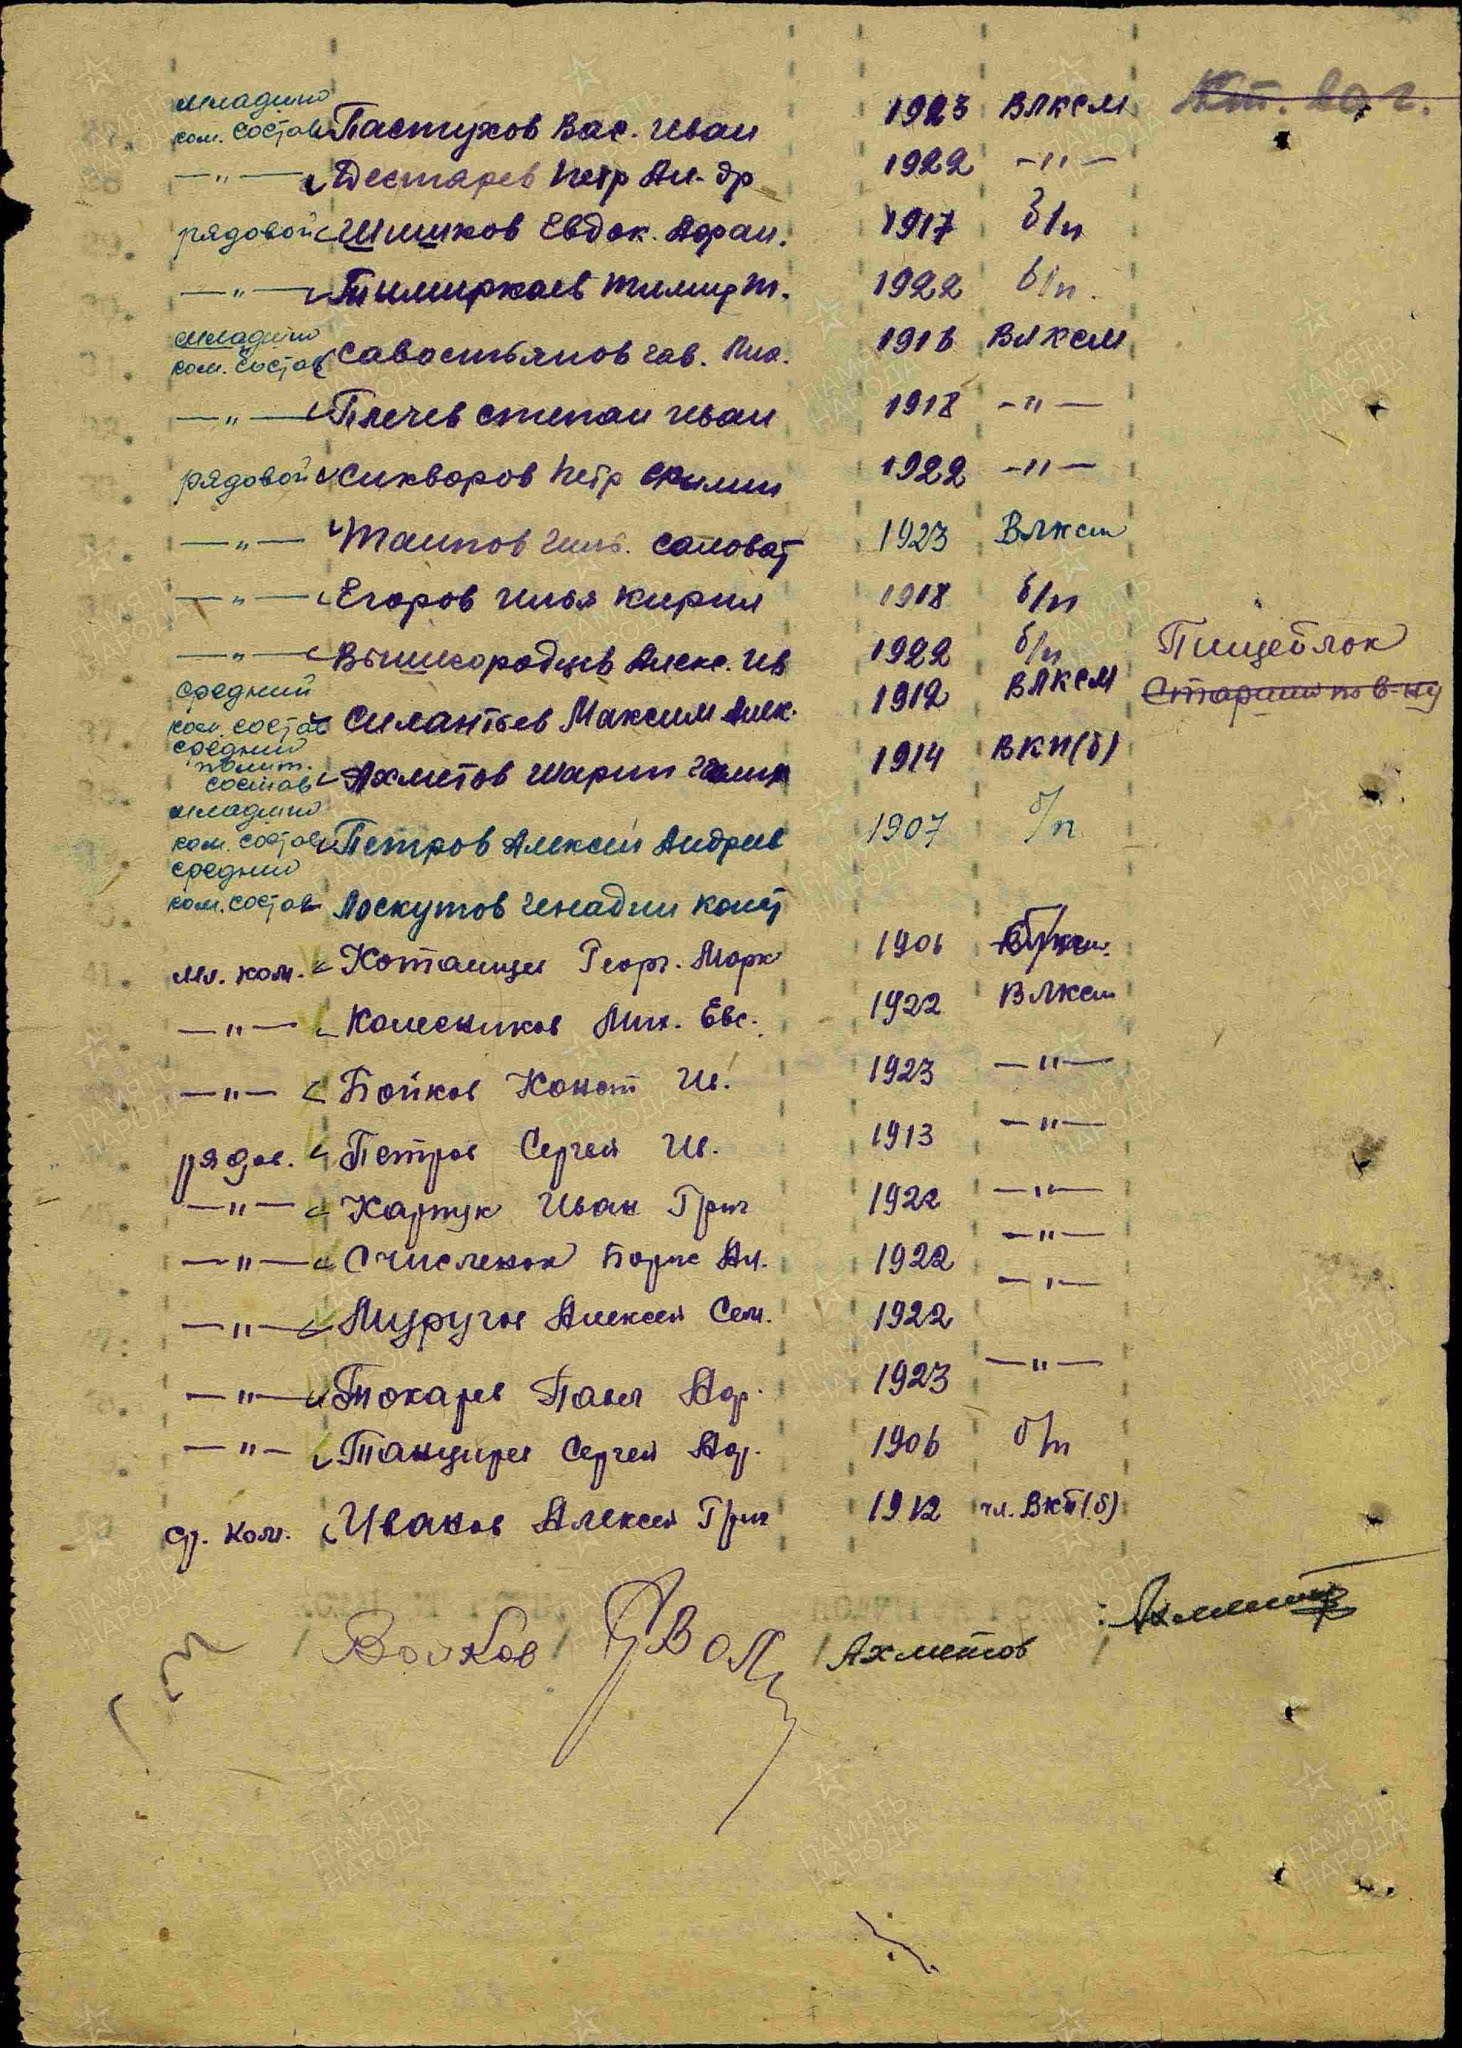 младший
ком. состав Пастухов Вас. Иван 1923 ВЛКСМ
—"— Дестарев Петр Ал-др 1922 —"—
рядовой Шишков Евдок. Афан. 1917 б/п
—"— Тимиркаев Тимир Т. 1922 б/п.
младший
ком. состав Савостьянов Гав. 1916 ВЛКСМ
—"— Плечев Степан Иван 1918 —"—
рядовой Сикворов Петр 1922 —"—
—"— Таипов Саловат 1923 ВЛКСМ
—"— Егоров Илья Кирил 1918 б/п
—"— Вышегородцев Алекс. Ив 1922 б/п Пищеблок
средний
ком. состав Силантьев Максим Алек. 1912 ВЛКСМ Старший по в-ну
средний
полит.
состав Ахметов Шарип 1914 ВКП(б)
младший
ком. состав Петров Алексей Андрев 1907 б/п
средний
ком. состав Лоскутов Генадий Конст
мл. ком. Котанцев Георг. Марк 1906
—"— Колесников Мих. Евс. 1922 ВЛКСМ
—"— Бойков Конст Ив. 1923 —"—
рядов. Петров Сергей Ив. 1913 —"—
—"— Картук Иван Григ 1922 —"—
—"— Счисленок Борис Ал. 1922 —"—
—"— Муругов Алексей Сем. 1922 —"—
—"— Токарев Павел 1923 —"—
—"— Танцирев Сергей 1906 б/п
ср. ком. Иванов Алексей Григ 1912 чл. ВКП(б)
/Волков/ /Ахметов/
ПАМЯТЬ НАРОДА